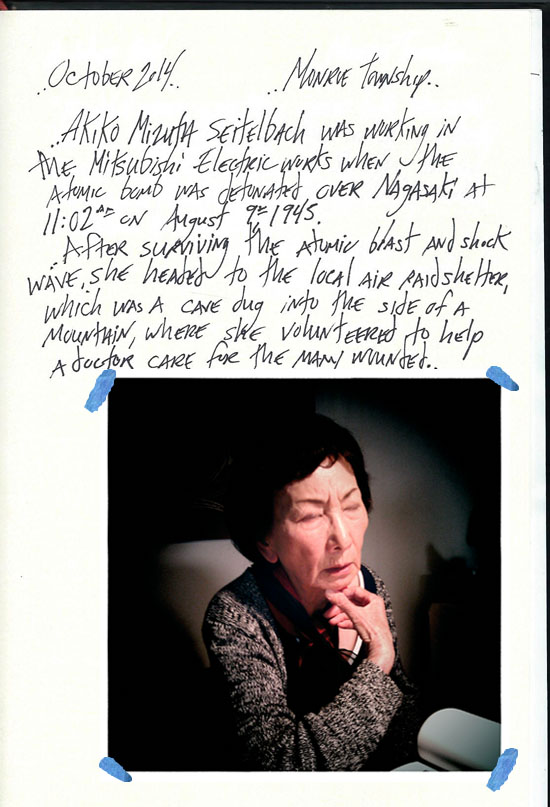 ..October 2014.. ..Monroe Township..
..Akiko Mizuta Seitelbach was working in
the Mitsubishi Electric works when the
atomic bomb was detonated over Nagasaki at
11:02 AM on August 9th 1945.
..After surviving the atomic blast and shock
wave, she headed to the local air raid shelter,
which was a cave dug into the side of a
mountain, where she volunteered to help
a doctor care for the many wounded..